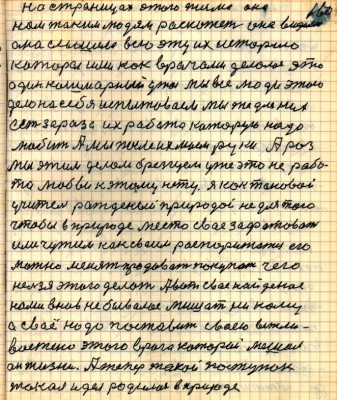 160
на страницах этого тилма она
нам таким людям раскожет она видела
она слышила всю эту их историю
которая или как врачами делола это
один кашмарный ужас мы все люди этого
дело на себя испытоваем мы же для них
ест зараза их работа которую надо
любит А мы
Мы этим делом брезгуем уже это не рабо-
та любви к этому нету. я как таковой
учител рожденый природой не для того
чтобы в природе место свае задратоват
или чужим как своим распоритатся его
можно менят продоват покупат чего
нелзя этого делот А вот свае найденае
нами внав небывалае мешат ни кому
а своё надо поставит своею вежли-
востю этого врага которай мешал
ан жизни. А тепер такой поступок
такая идея родилас в природе